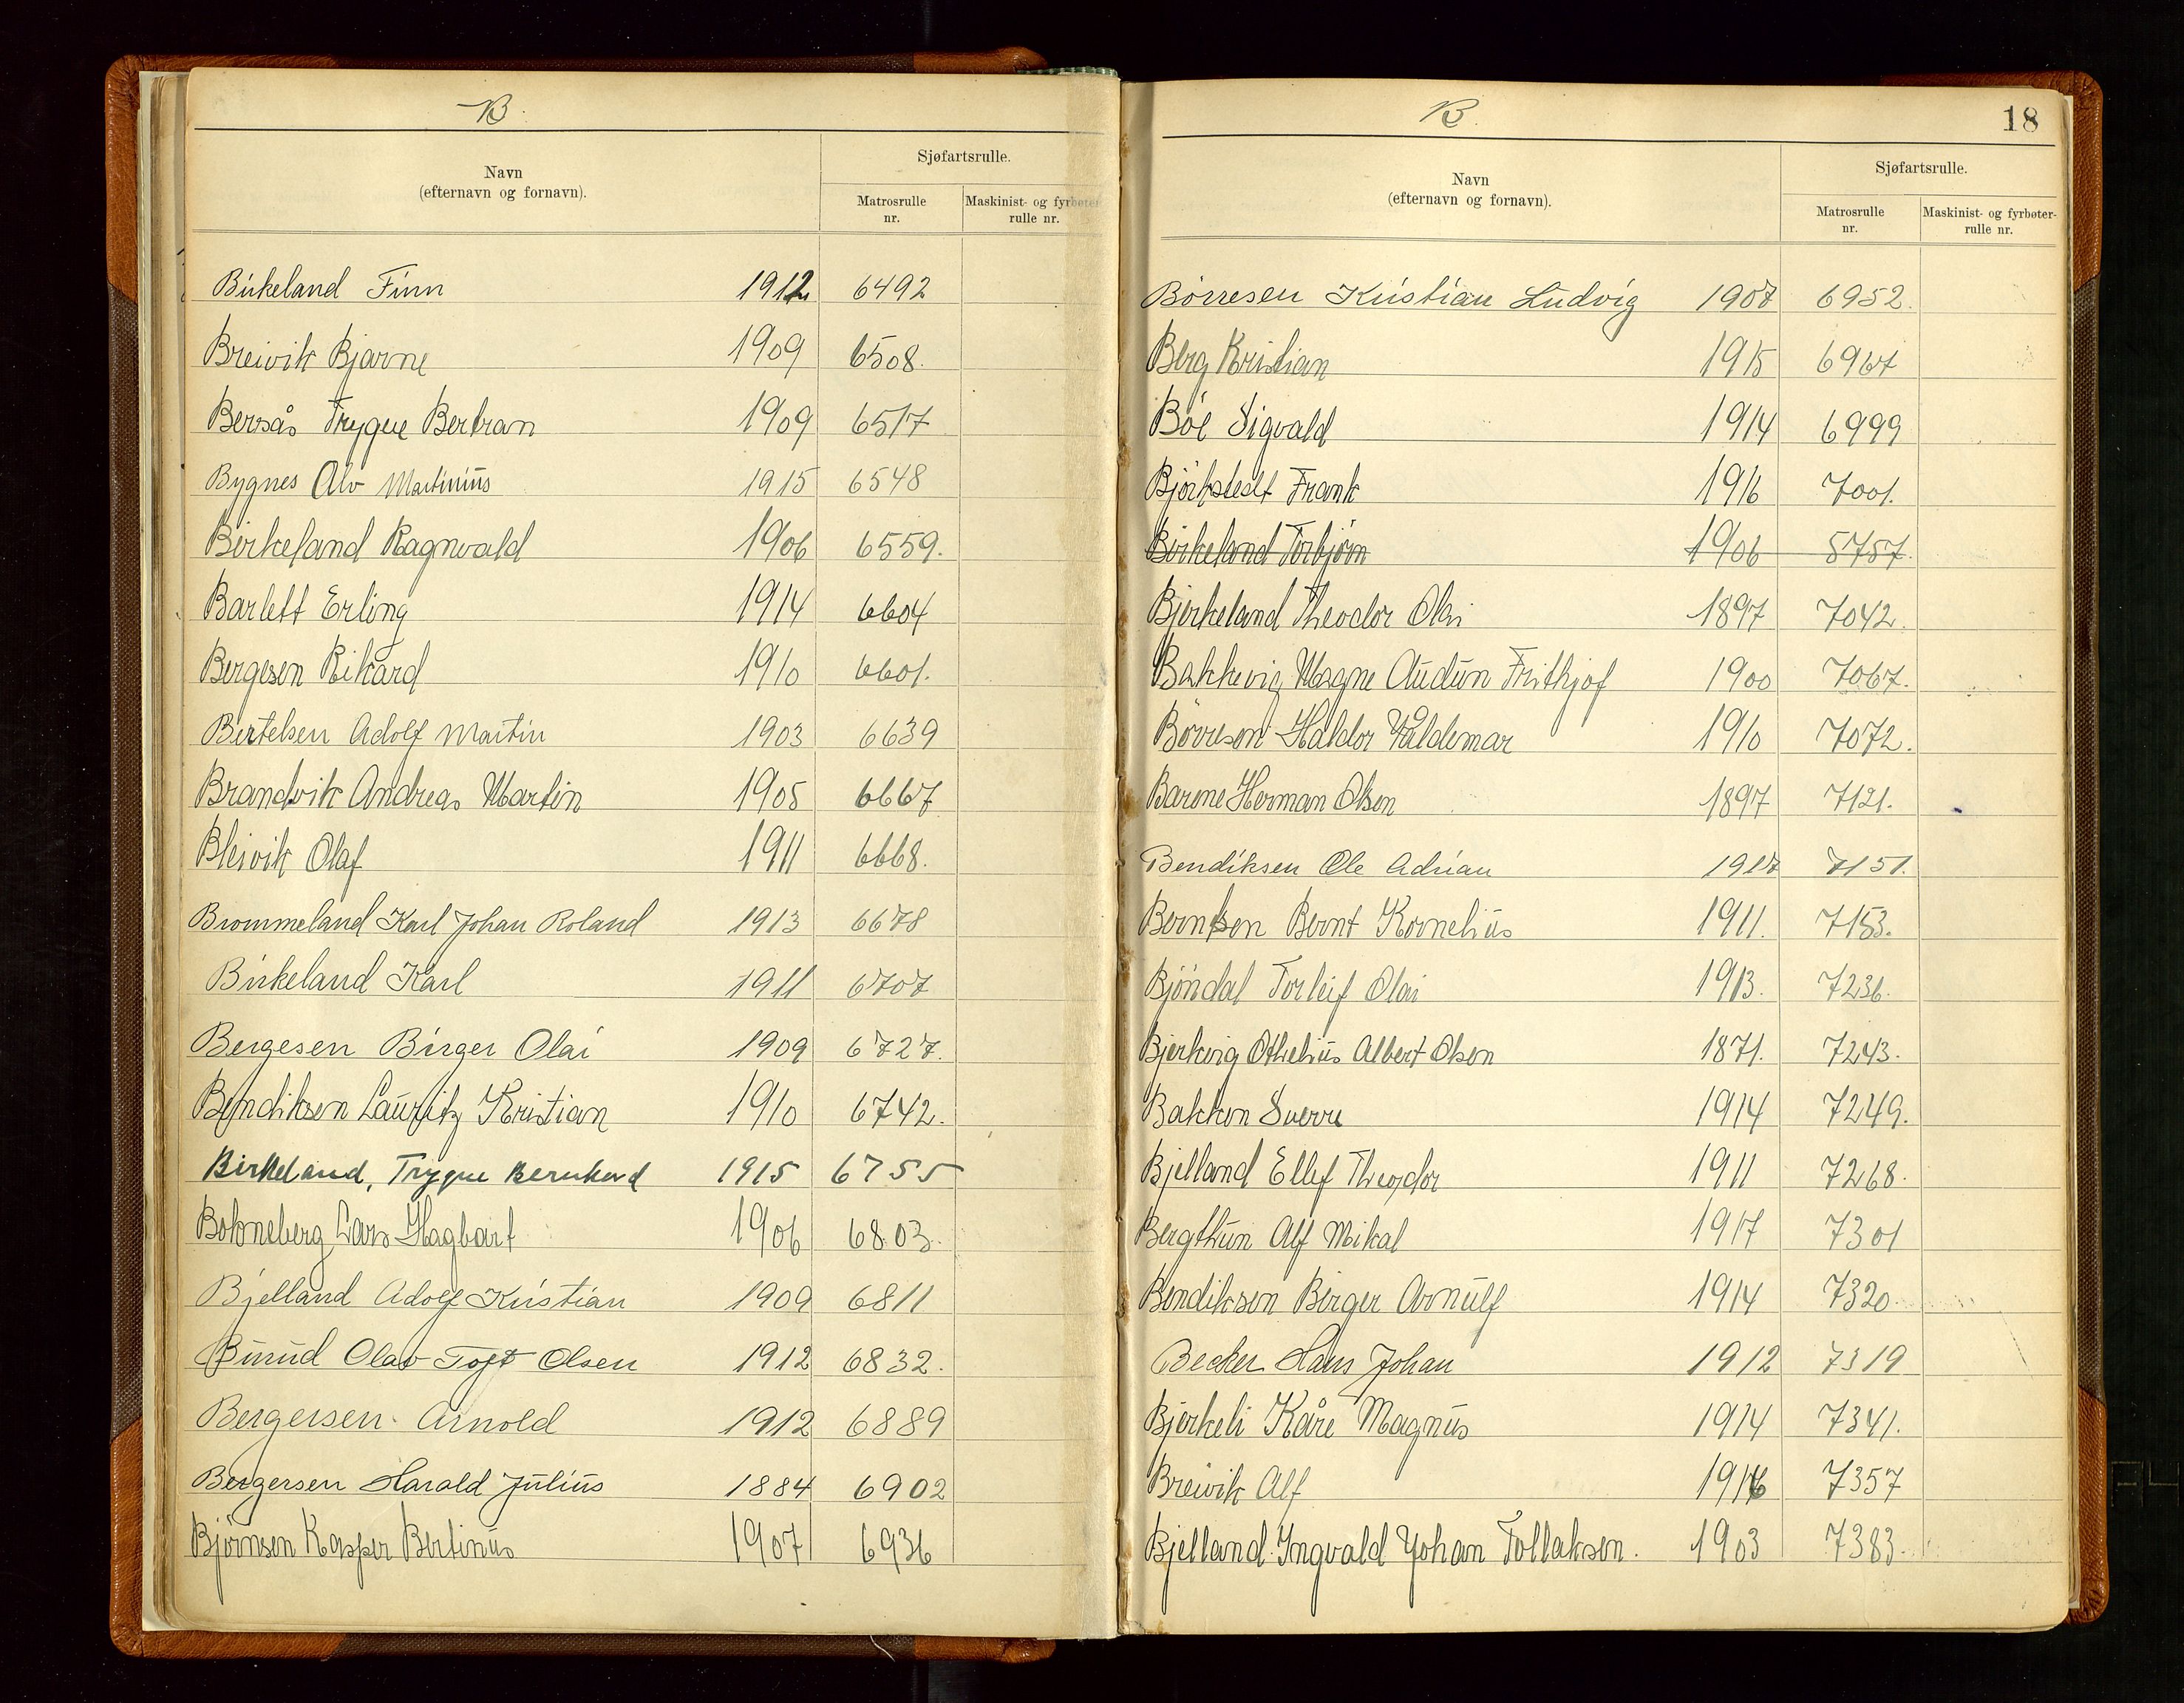 B.
Navn
(efternavn og fornavn).
Sjøfartsrulle.
Matrosrulle
nr.
Maskinist- og fyrbøter-
rulle nr.
Birkeland Finn 1912 6492
Breivik Bjarne 1909 6508.
Bersås Trygve Bertran 1909 6517
Bygnes Alv Martinius 1915 6548
Birkeland Ragnvald 1906 6559.
Barlett Erling 1914 6604
Bergesen Rikard 1910 6601.
Bertelsen Adolf Martin 1903 6639
Brandvik Andreas Martin 1905 6667
Bleivik Olaf 1911 6668.
Brommeland Karl Johan Roland 1913 6678
Birkeland Karl 1911 6707
Bergesen Birger Olai 1909 6727.
Bendiksen Lauritz Kristian 1910 6742.
Birkeland, Trygve Bernhard 1915 6755
Lars Hagbart 1906 6803.
Bjelland Adolf Kristian 1909 6811
Burud Olav Toft Olsen 1912 6832.
Bergersen Arnold 1912 6889
Bergersen Harald Julius 1884 6902
Bjørnsen Kasper Bertinius 1907 6936
B.
18
Navn
(efternavn og fornavn).
Sjøfartsrulle.
Matrosrulle
nr.
Maskinist- og fyrbøter-
rulle nr.
Børresen Kristian Ludvig 1907 6952.
Berg Kristian 1915 6967
Bøe Sigvald 1914 6999
Bjørkstedt Frank 1916 7001.
Birkeland Torbjørn 1906 5757.
Bjerkeland Theodor Olai 1897 7042.
Bakkevig Magne Audun Frithjof 1900 7067.
Børresen Haldor Valdemar 1910 7072.
Barene Herman Olsen 1897 7121.
Bendiksen Ole Adrian 1917 7151.
Berntsen Bernt Kornelius 1911. 7153.
Bjøndal Torleif Olai 1913. 7236.
Bjerkvig Othelius Albert Olsen 1871. 7243.
Bakken Sverre 1914 7249.
Bjelland Ellef Theodor 1911 7268.
Bergthun Alf Mikal 1917 7301
Bendiksen Birger Arnulf 1914 7320
Becker Hans Johan 1912 7319
Bjerkeli Kåre Magnus 1914 7341.
Breivik Alf 1916 7357
Bjelland Ingvald Johan Tollaksen. 1903 7383.